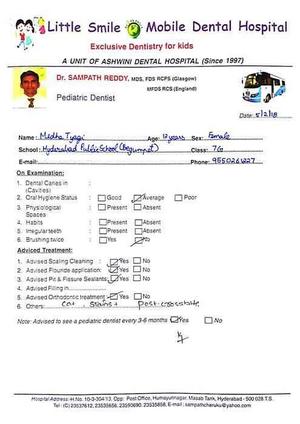 Little Smile Mobile Dental Hospital
Exclusive Dentistry for kids
A UNIT OF ASHWINI DENTAL HOSPITAL (Since 1997)
Dr. SAMPATH REDDY, MDS, FDS RCPS (Glasgow)
MFDS RCS (England)
Pediatric Dentist
Date: 5/2/18
Name: Medha Tyagi Age: 12 years Sex: Female
School: Hyderabad Public School (Begumpet) Class: 7G
E-mail: Phone: 9550261227
On Examination:
1. Dental Caries in (Cavities) :
2. Oral Hygiene Status : Good Average Poor
3. Physiological Spaces : Present Absent
4. Habits : Present Absent
5. Irregular teeth : Present Absent
6. Brushing twice : Yes No
Adviced Treatment:
1. Advised Scaling Cleaning : Yes No
2. Advised Flouride application : Yes No
3. Advised Pit & Fissure Sealants : Yes No
4. Advised Filling in
5. Advised Orthodontic treatment - Yes No
6. Others: Cal, Stains+
Note: Advised to see a pediatric dentist every 3-6 months Yes No
Hospital Address: H.No. 10-3-304/13, Opp: Post Office, Humayunnagar, Masab Tank, Hyderabad - 500 028 T.S.
Tel: (C) 23537612, 23535658, 23593690, 23535858, E-mail: sampathcheruku@yahoo.com